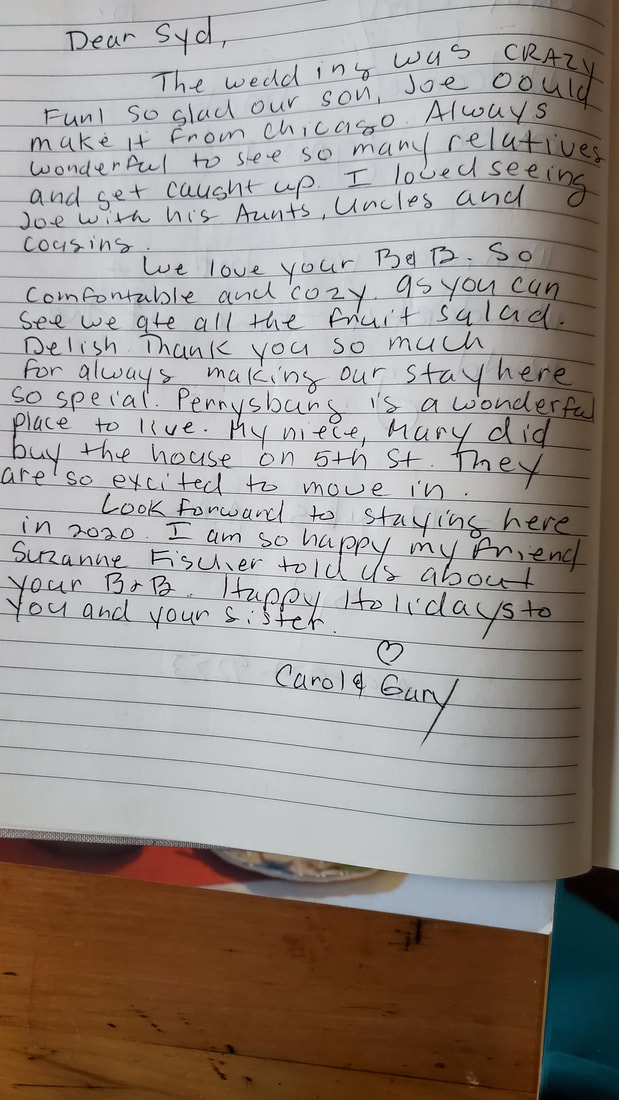 Dear Syd,
The wedding was CRAZY
Fun! So glad our son, Joe could
make it from Chicago. Always
wonderful to see so many relatives
and get caught up. I loved seeing
Joe with his Aunts, Uncles and
cousins.
We love your B&B. So
comfortable and cozy. As you can
see we ate all the fruit salad.
Delish. Thank you so much
for always making our stay here
so speial. Perrysburg is a wonderful
place to live. My niece, Mary did
buy the house on 5th St. They
are so excited to move in.
Look forward to staying here
in 2020. I am so happy my friend
Suzanne Fischer told us about
your B&B. Happy Holidays to
you and your sister.
♡
Carol & Gary